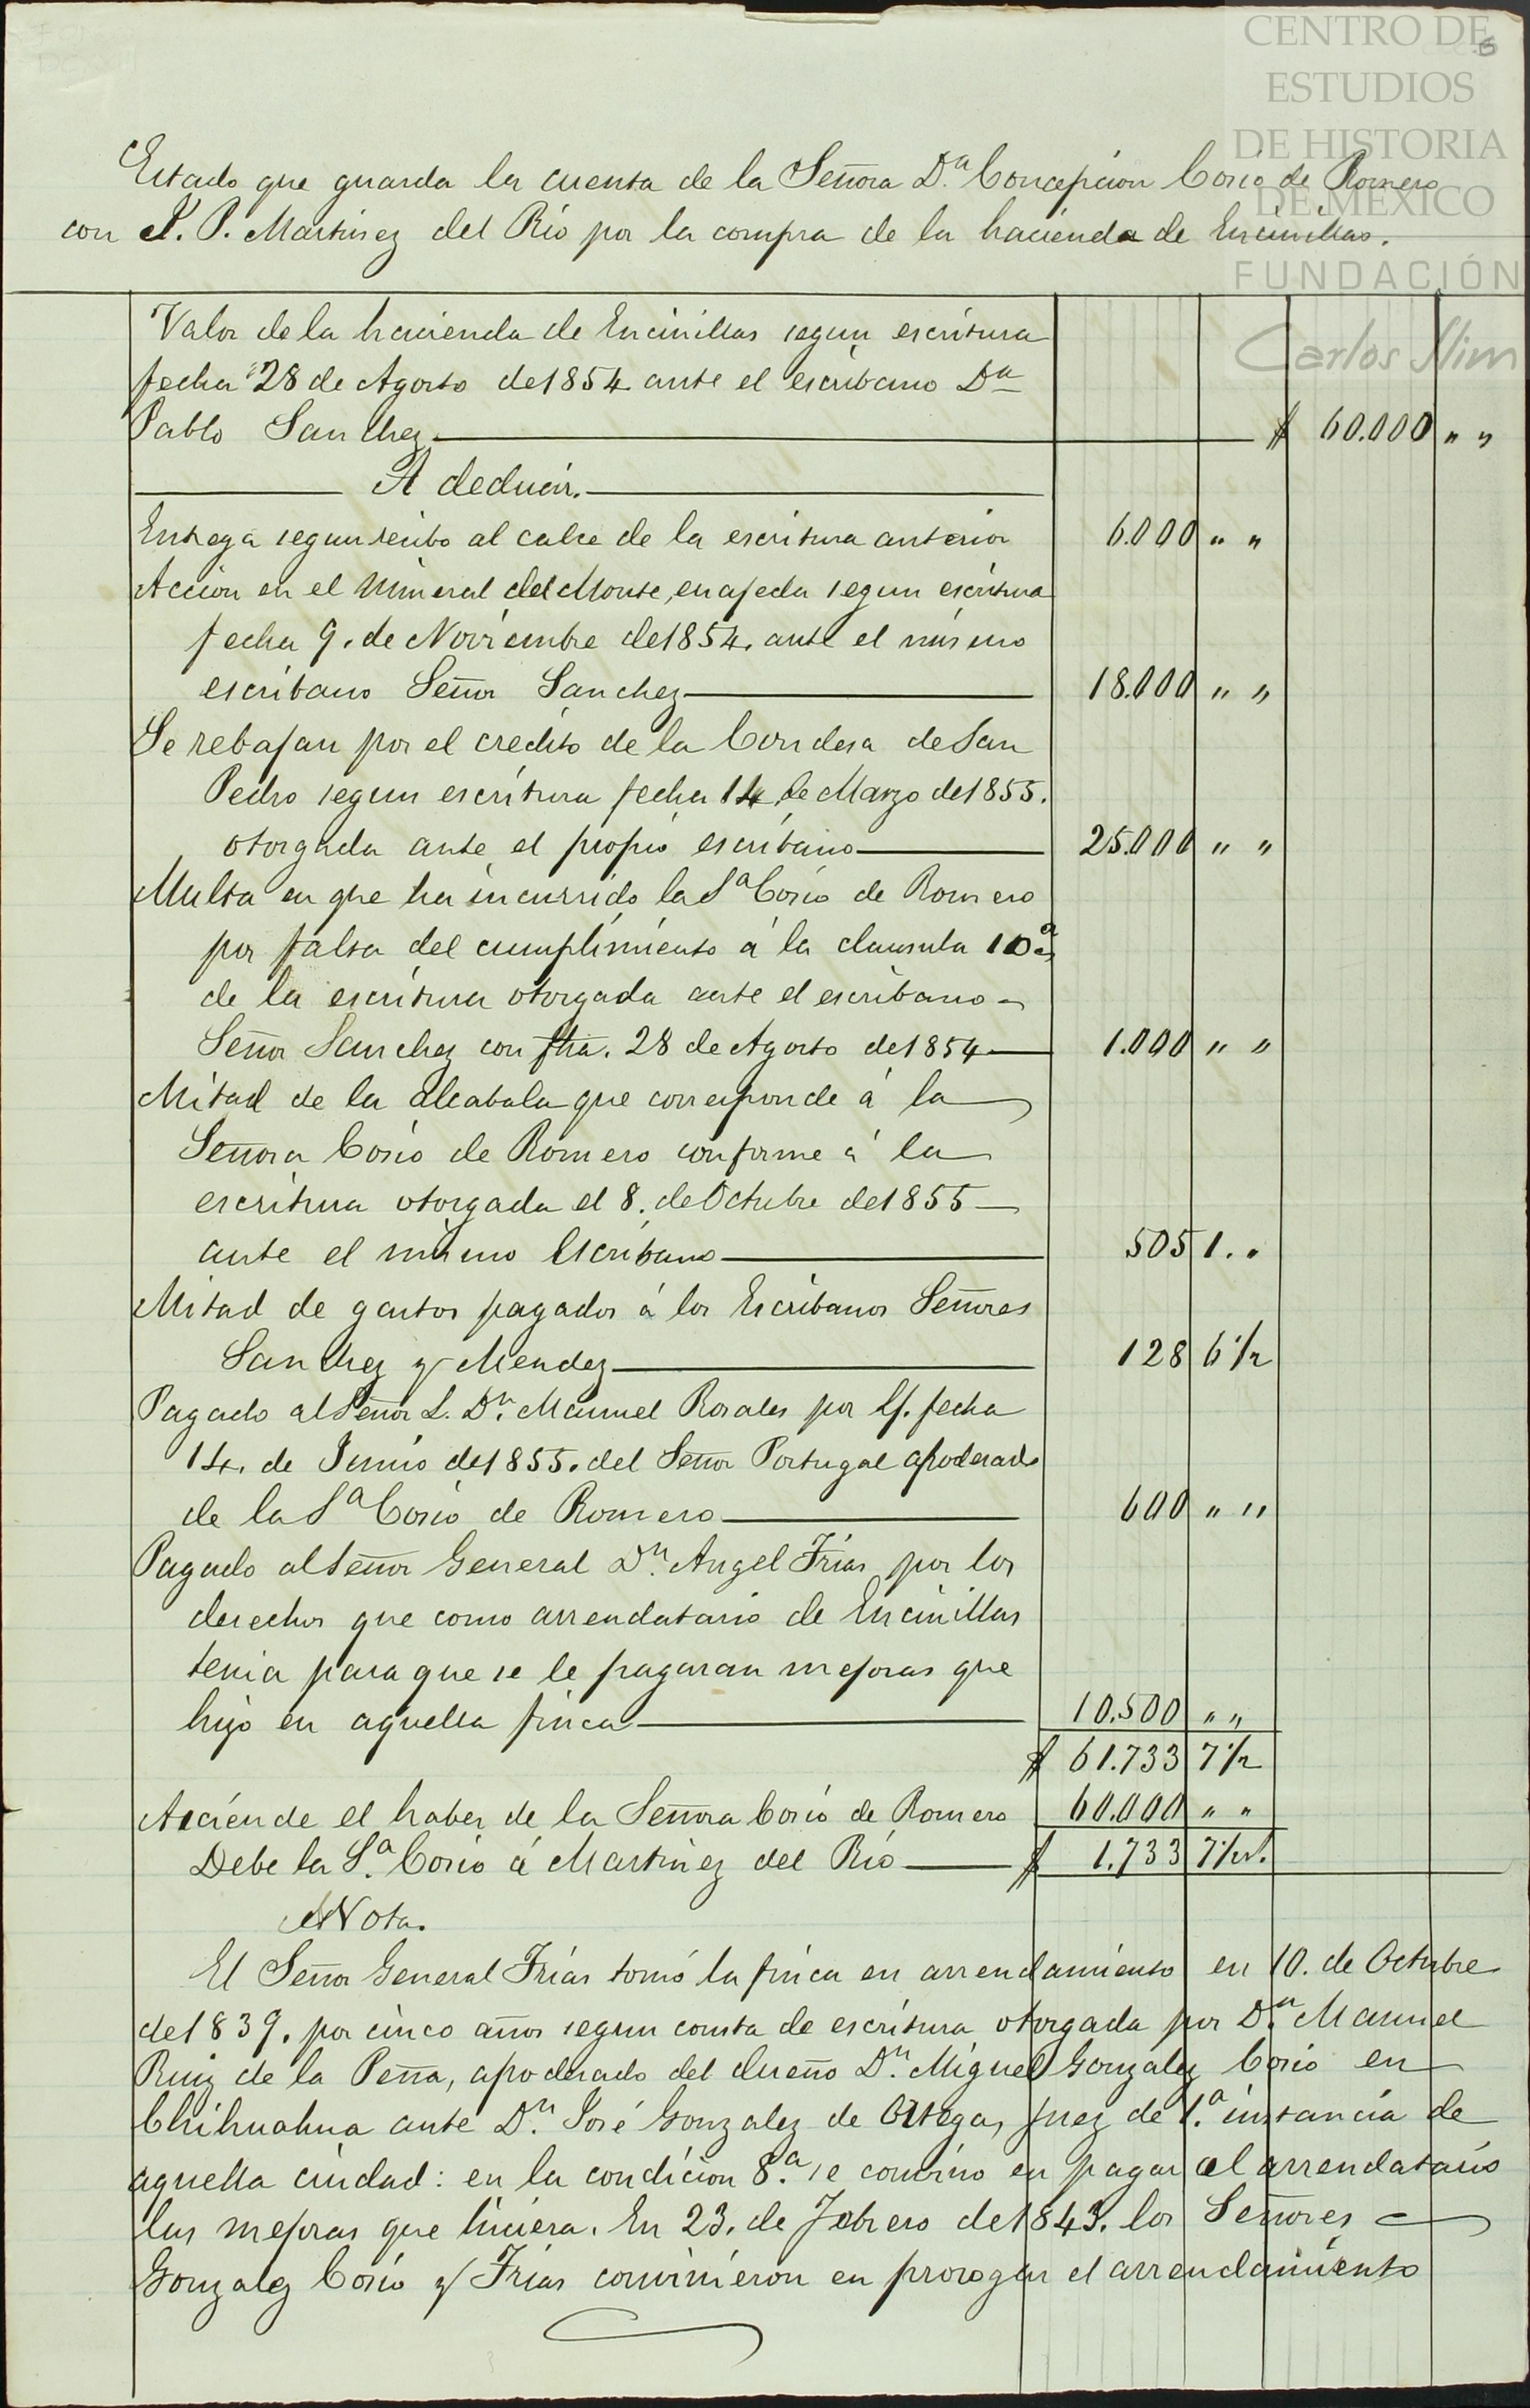 CENTRO DE
ESTUDIOS
DE HISTORIA
DE MÉXICO
FUNDACIÓN
Carlos Slim
Estado que guarda la cuenta de la Señora D.ª Concepcion Cosio de Romero
con J. P. Martinez del Rio por la compra de la hacienda de Encinillas.
Valor de la hacienda de Encinillas segun escritura
fecha 28 de Agosto de 1854 ante el escribano Dn
Pablo Sanchez $ 60.000 " "
A deducir.
Entrega segun recibo al calce de la escritura anterior 6.000 " "
Accion en el Mineral del Monte, enajeda segun escritura
fecha 9. de Noviembre de 1854. ante el mismo
escribano Señor Sanchez 18.000 " "
Se rebajan por el credito de la Condesa de San
Pedro segun escritura fecha 14 de Marzo de 1855.
otorgada ante el propio escribano 25.000 " "
Multa en que ha incurrido la Sª Cosio de Romero
por falta del cumplimiento á la clausula 10ª
de la escritura otorgada ante el escribano
Señor Sanchez con fha. 28 de Agosto de 1854 1.000 " "
Mitad de la alcabala que corresponde á la
Señora Cosio de Romero conforme á la
escritura otorgada el 8. de Octubre de 1855
ante el mismo Escribano 505 1 . .
Mitad de gastos pagados á los Escribanos Señores
Sanchez y Mendez 128 6 1/2
Pagado al Señor L. Dn. Manuel Rosales por lf. fecha
14. de Junio de 1855. del Señor Portugal apoderado
de la Sª Cosio de Romero 600 " "
Pagado al Señor General Dn. Angel Frias por los
derechos que como arrendatario de Encinillas
tenia para que se le pagaran mejoras que
hizo en aquella finca 10.500 " "
$ 61.733 7 1/2
Asciende el haber de la Señora Cosio de Romero 60.000 " "
Debe la S.ª Cosio á Martinez del Rio $ 1.733 7 1/2 r.
Nota.
El Señor General Frias tomó la finca en arrendamiento en 10. de Octubre
de 1839. por cinco años segun consta de escritura otorgada por Dn. Manuel
Ruiz de la Peña, apoderado del dueño Dn. Miguel Gonzalez Cosio en
Chihuahua ante Dn. José Gonzalez de Ortega, Juez de 1.ª instancia de
aquella ciudad: en la condicion 8.ª se convino en pagar al arrendatario
las mejoras que hiciera. En 23. de Febrero de 1843. los Señores
Gonzalez Cosio y Frias convinieron en prorogar el arrendamiento